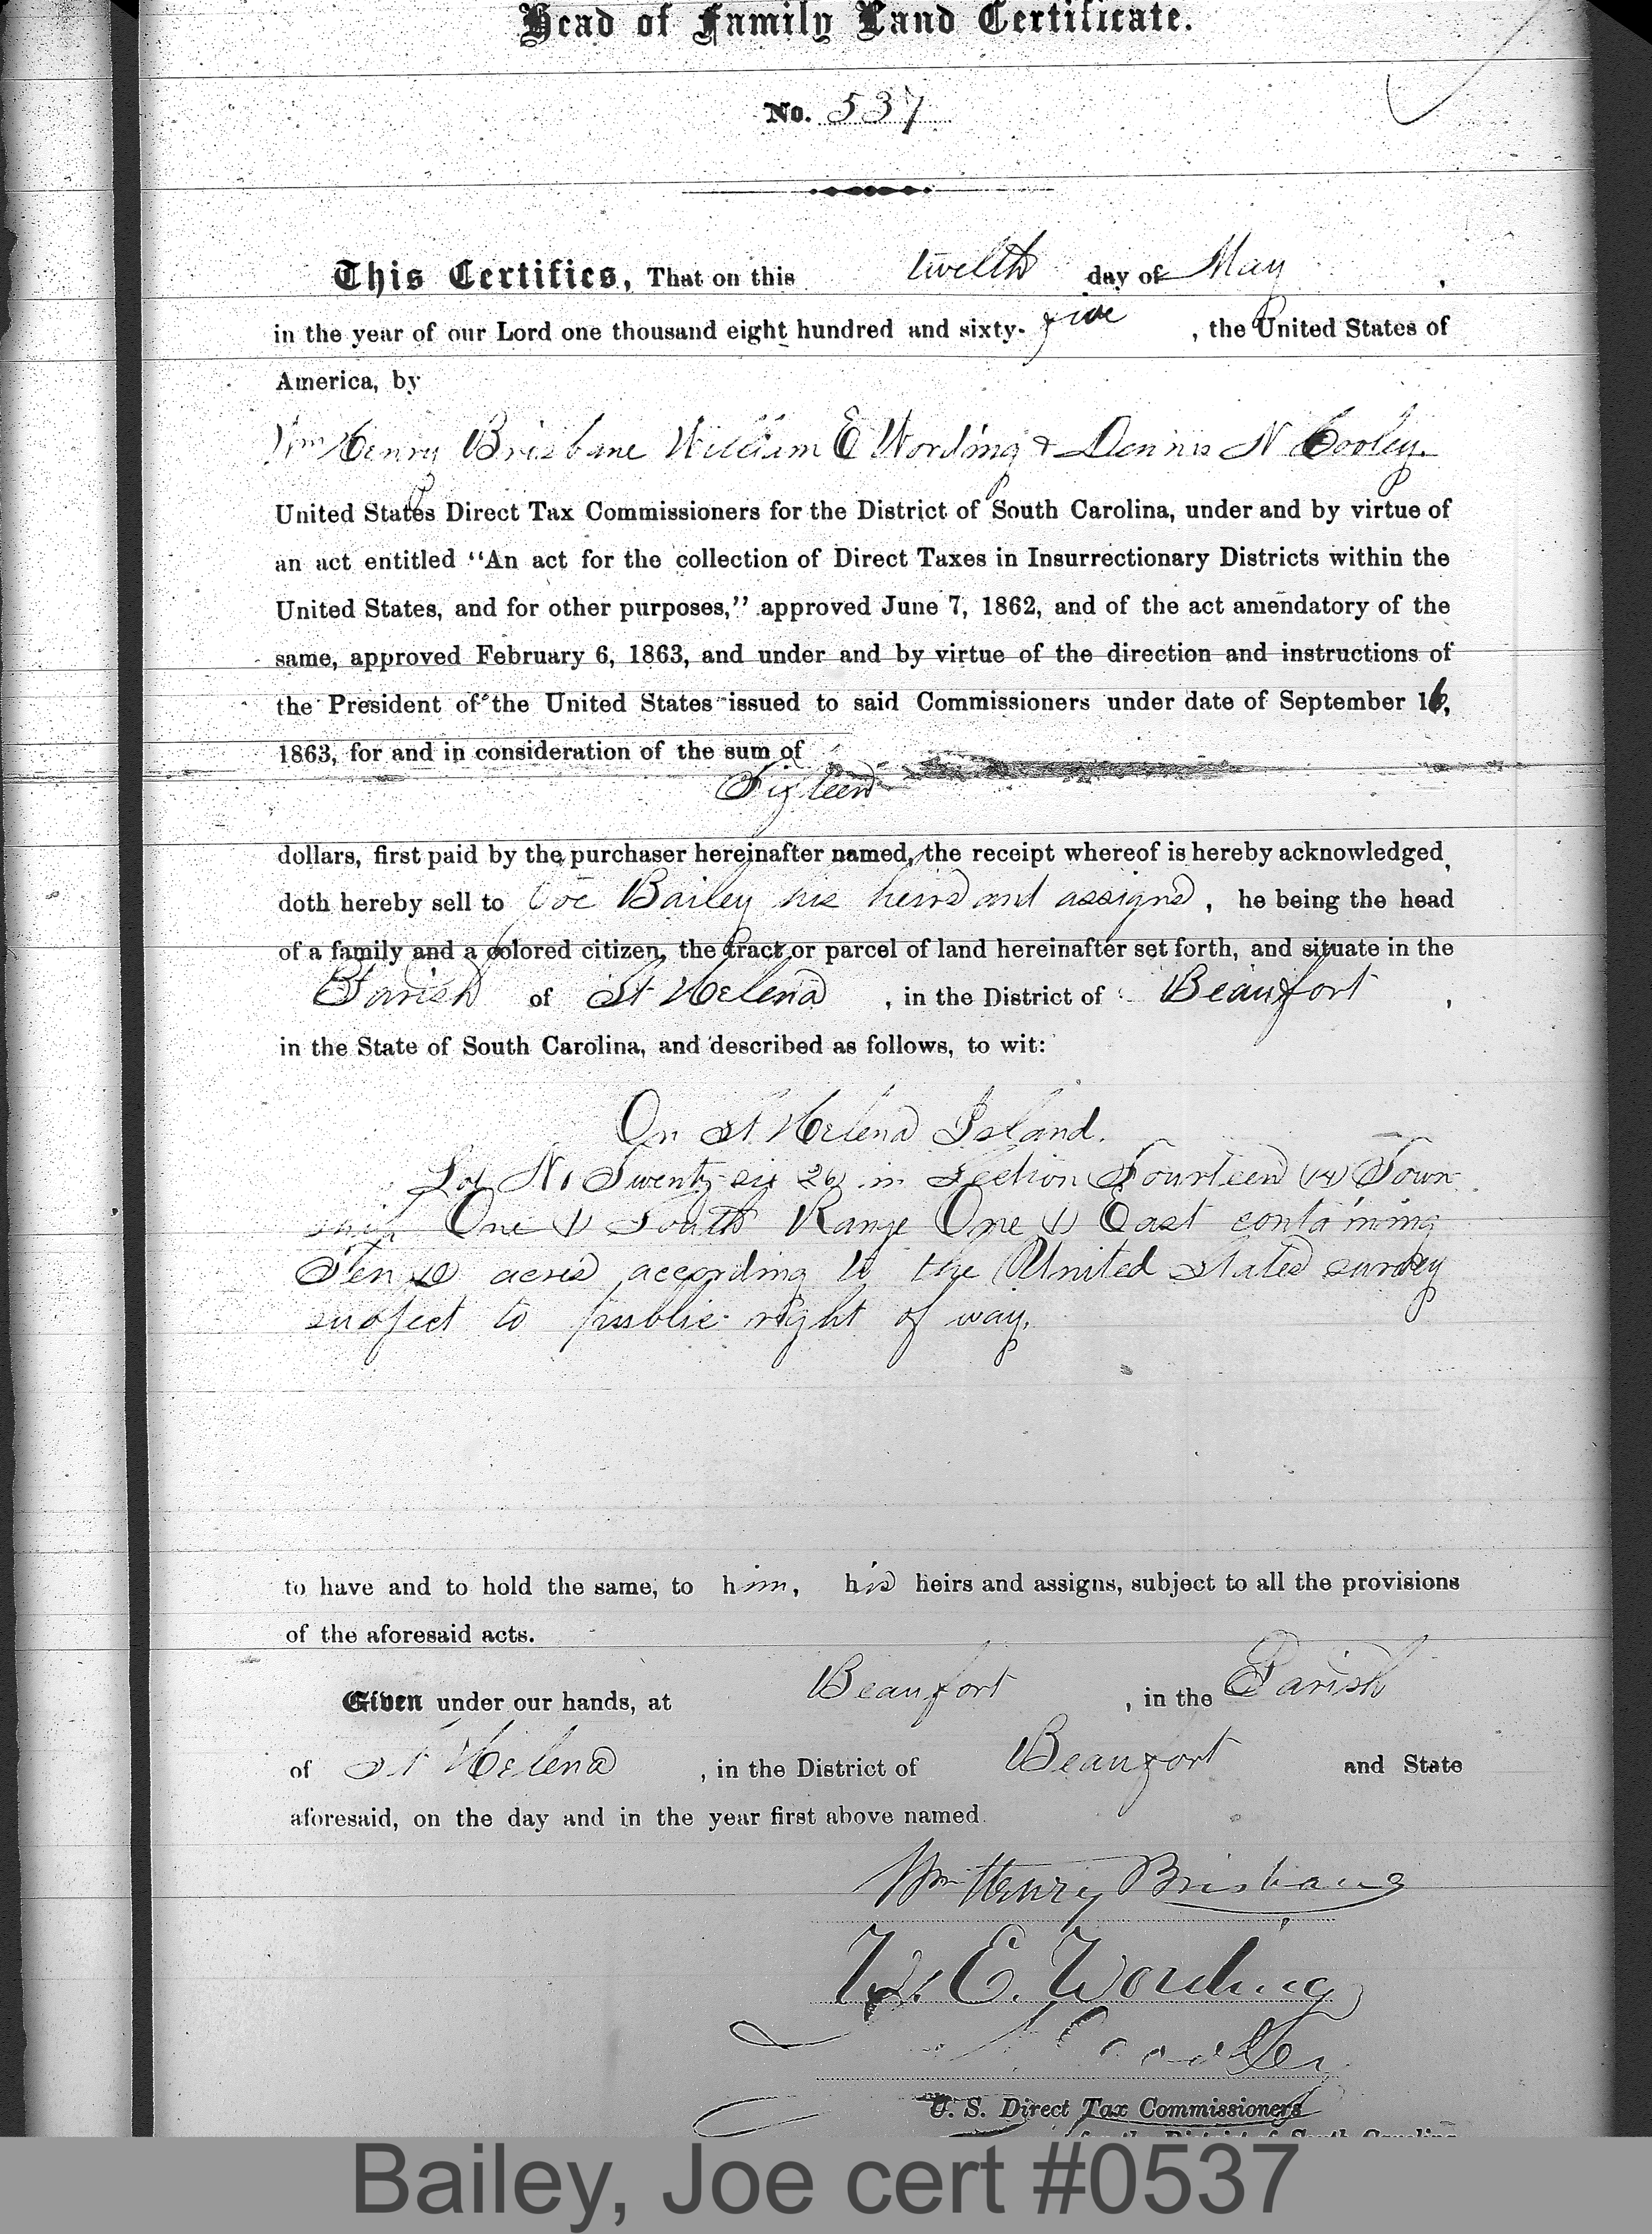 Head of Family Land Certificate.
No. 537
This Certifies, That on this twelth day of May,
in the year of our Lord one thousand eight hundred and sixty-five, the United States of
America, by
Wm Henry Brisbane William E Wording & Dennis N Cooley.
United States Direct Tax Commissioners for the District of South Carolina, under and by virtue of
an act entitled “An act for the collection of Direct Taxes in Insurrectionary Districts within the
United States, and for other purposes,” approved June 7, 1862, and of the act amendatory of the
same, approved February 6, 1863, and under and by virtue of the direction and instructions of
the President of the United States issued to said Commissioners under date of September 16,
1863, for and in consideration of the sum of
dollars, first paid by the purchaser hereinafter named, the receipt whereof is hereby acknowledged,
doth hereby sell to Joe Bailey his heirs and assigns, he being the head
of a family and a colored citizen, the tract or parcel of land hereinafter set forth, and situate in the
Parish of St Helena, in the District of Beaufort,
in the State of South Carolina, and described as follows, to wit:
On St Helena Island.
Lot No Twenty-six 26 in Section Fourteen (14) Town
ship One (1) South Range One (1) East containing
Ten 10 acres according to the United States survey
subject to public right of way.
to have and to hold the same, to him, his heirs and assigns, subject to all the provisions
of the aforesaid acts.
Given under our hands, at Beaufort, in the Parish
of St Helena, in the District of Beaufort and State
aforesaid, on the day and in the year first above named.
Wm Henry Brisbane
W. E. Wording
Cooley
U. S. Direct Tax Commissioners
for the District of South Carolina
Bailey, Joe cert #0537